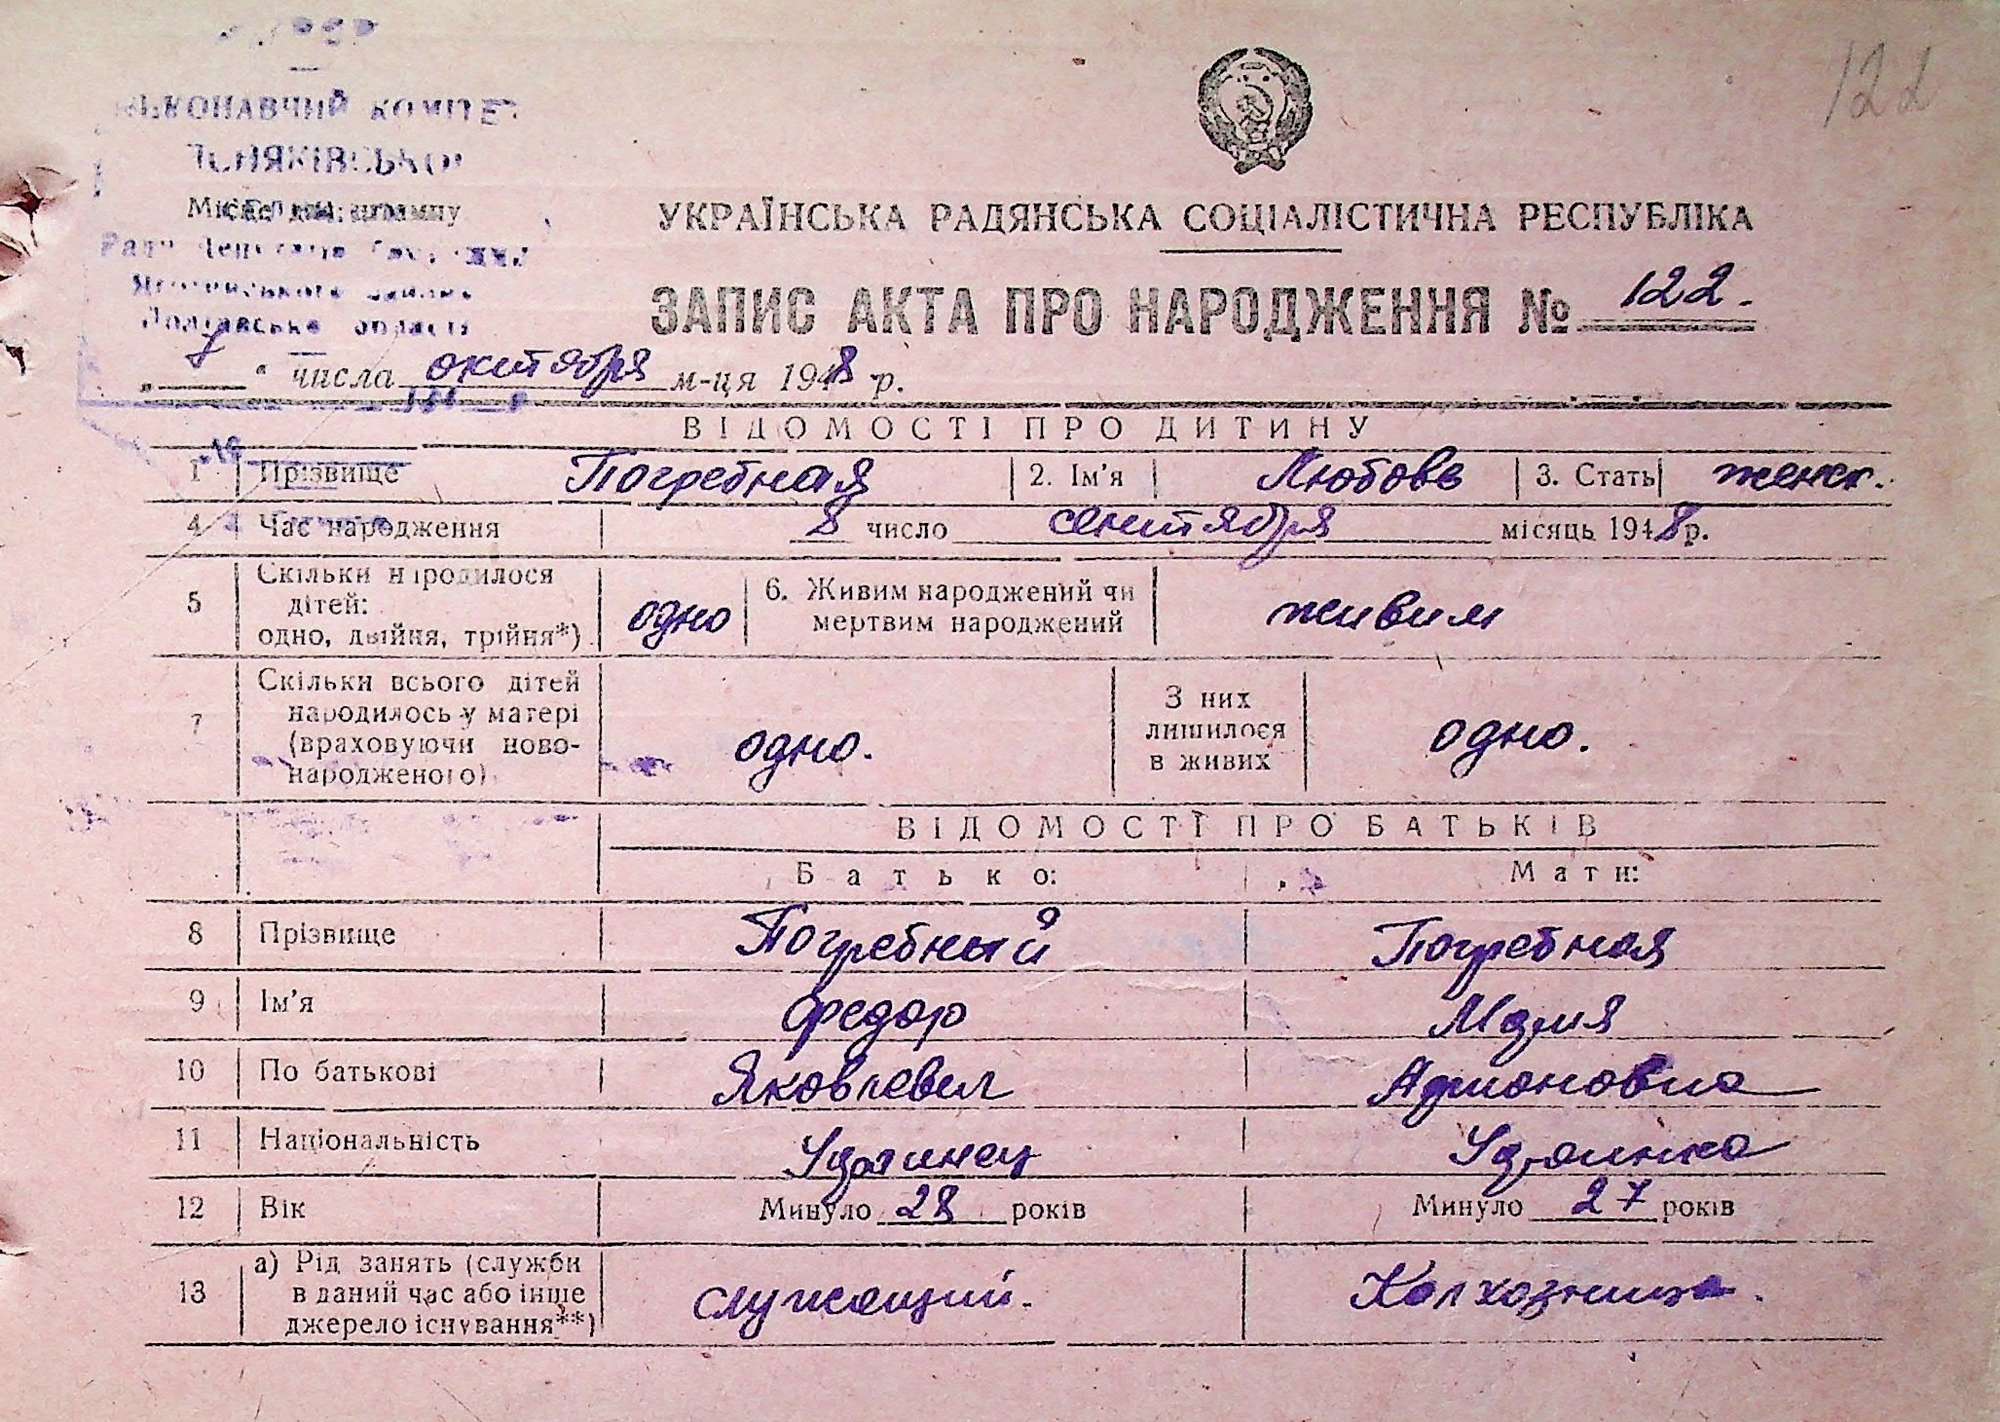 122
КОМІТЕТ
Місце для штампу
УКРАЇНСЬКА РАДЯНСЬКА СОЦІАЛІСТИЧНА РЕСПУБЛІКА
ЗАПИС АКТА ПРО НАРОДЖЕННЯ № 122.
області
" числа октября м-ця 1948 р.
ВІДОМОСТІ ПРО ДИТИНУ
1 Прізвище Погребная 2. Ім'я Любовь 3. Стать женск.
4 Час народження 8 число сентября місяць 1948 р.
5 Скільки народилося
дітей:
одно, двійня, трійня*)
одно
6. Живим народжений чи
мертвим народжений
живим
7 Скільки всього дітей
народилось у матері
(враховуючи ново-
народженого)
одно.
З них
лишилося
в живих
одно.
ВІДОМОСТІ ПРО БАТЬКІВ
Батько: Мати:
8 Прізвище Погребный Погребная
9 Ім'я Федор Мария
10 По батькові Яковлевич
11 Національність Украинец Украинка
12 Вік Минуло 28 років Минуло 27 років
13 а) Рід занять (служби
в даний час або інше
джерело існування**)
служащий. Колхозница.